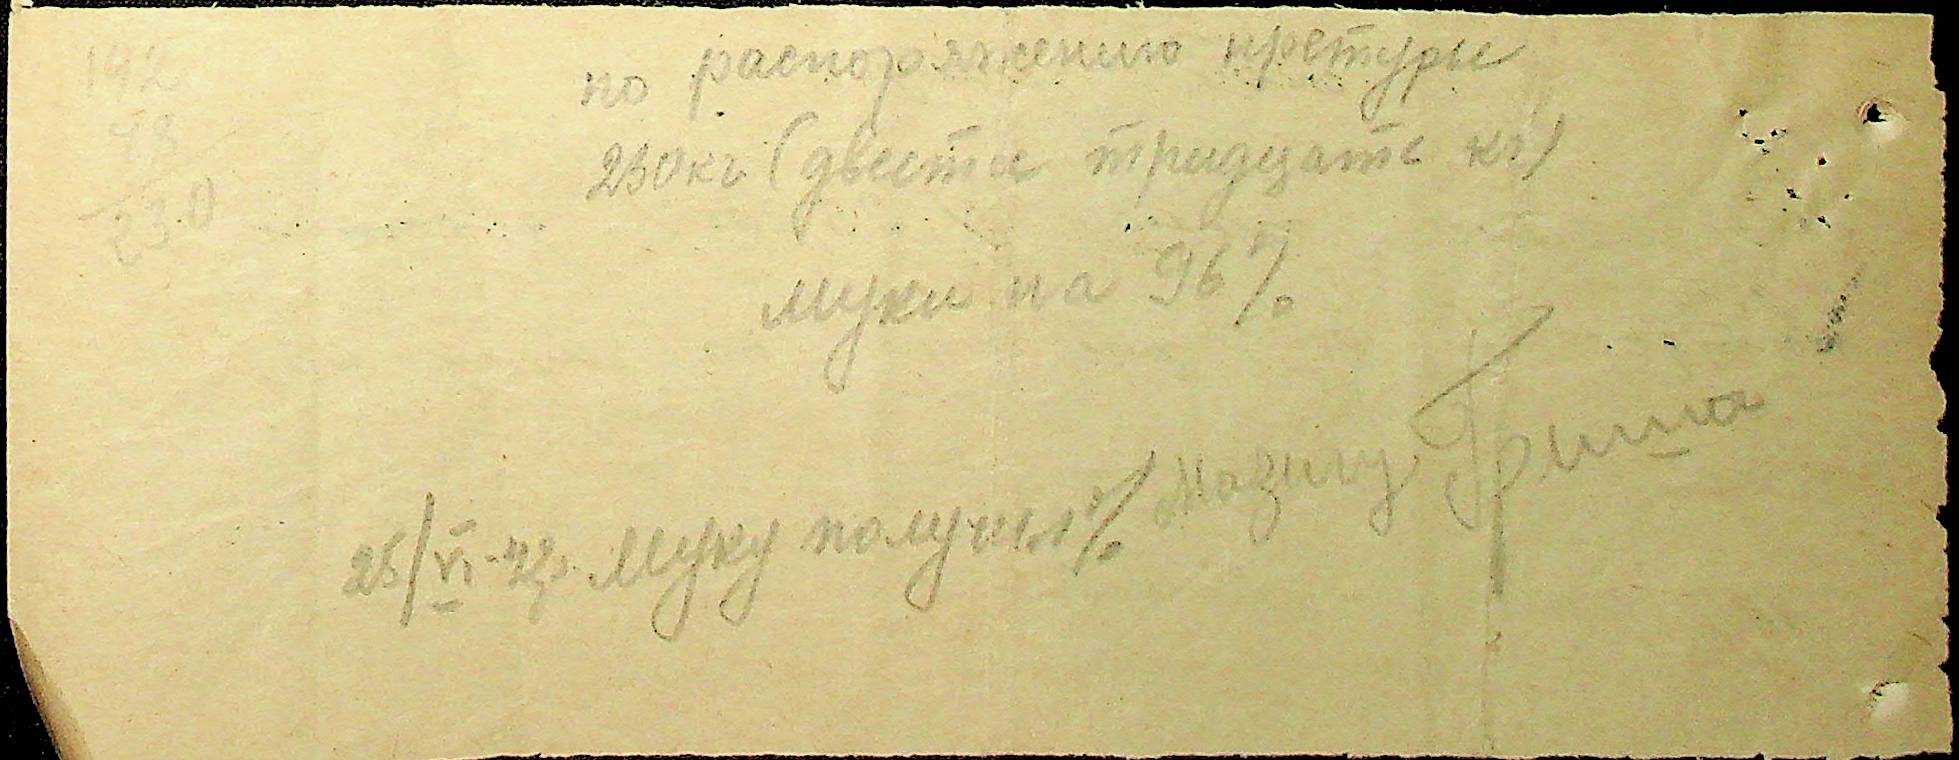 142
43
230
по распоряжению претуры
230 кг (двести тридцать кг)
муки на 96%
25/VI-42г. Муку получил % Мазилу Гриша